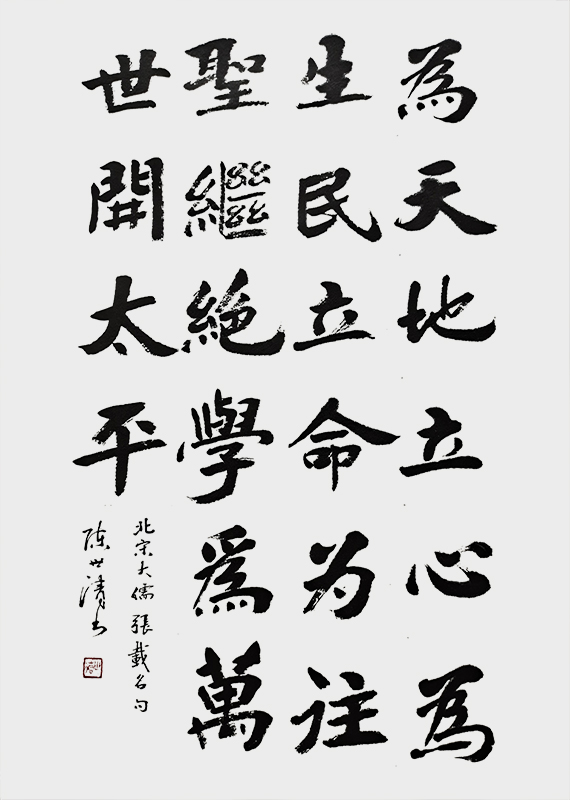 為天地立心為
生民立命为往
聖繼絶學爲萬
世開太平
北宋大儒張載名句
陈世清书